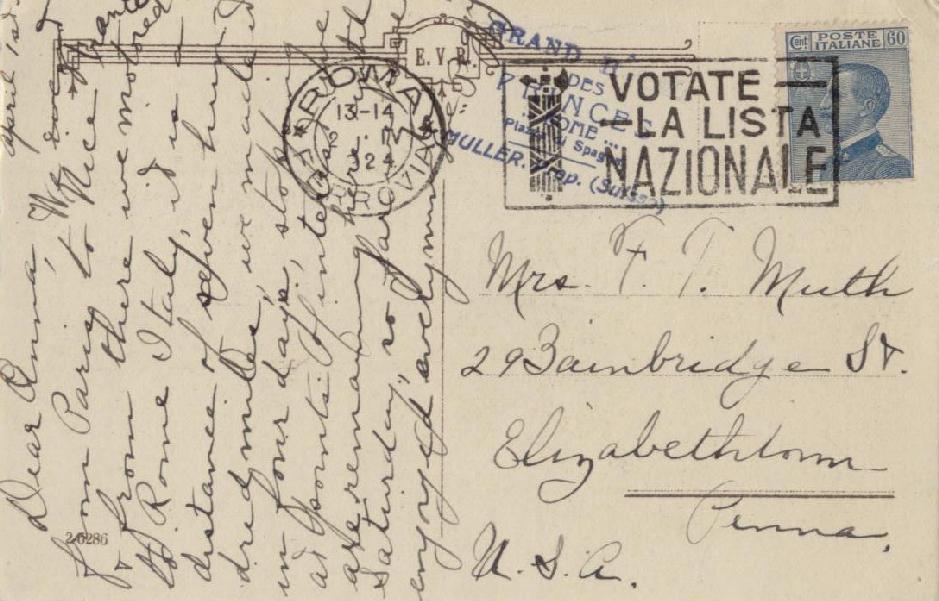 Dear Anna, We sure
from Paris to Nice France
& from there we motored
to Rome Italy, it is a
distance of seven hun-
dred miles, we made it
in four days, stop
at points of interest
are remaining here until
Saturday, so far have
enjoyed every minu
april 1st
E. V. R.
ROMA
13-14
24
FERROVIA
GRAND Hᵗ
DES
PRINCES
ROME
Piazza di Spagna
MULLER. Prop. (Suisse)
VOTATE
LA LISTA
NAZIONALE
Cent POSTE ITALIANE 60
Mrs. F. T. Muth
29 Bainbridge St.
Elizabethtown
Penna.
U. S. A.
2-6286